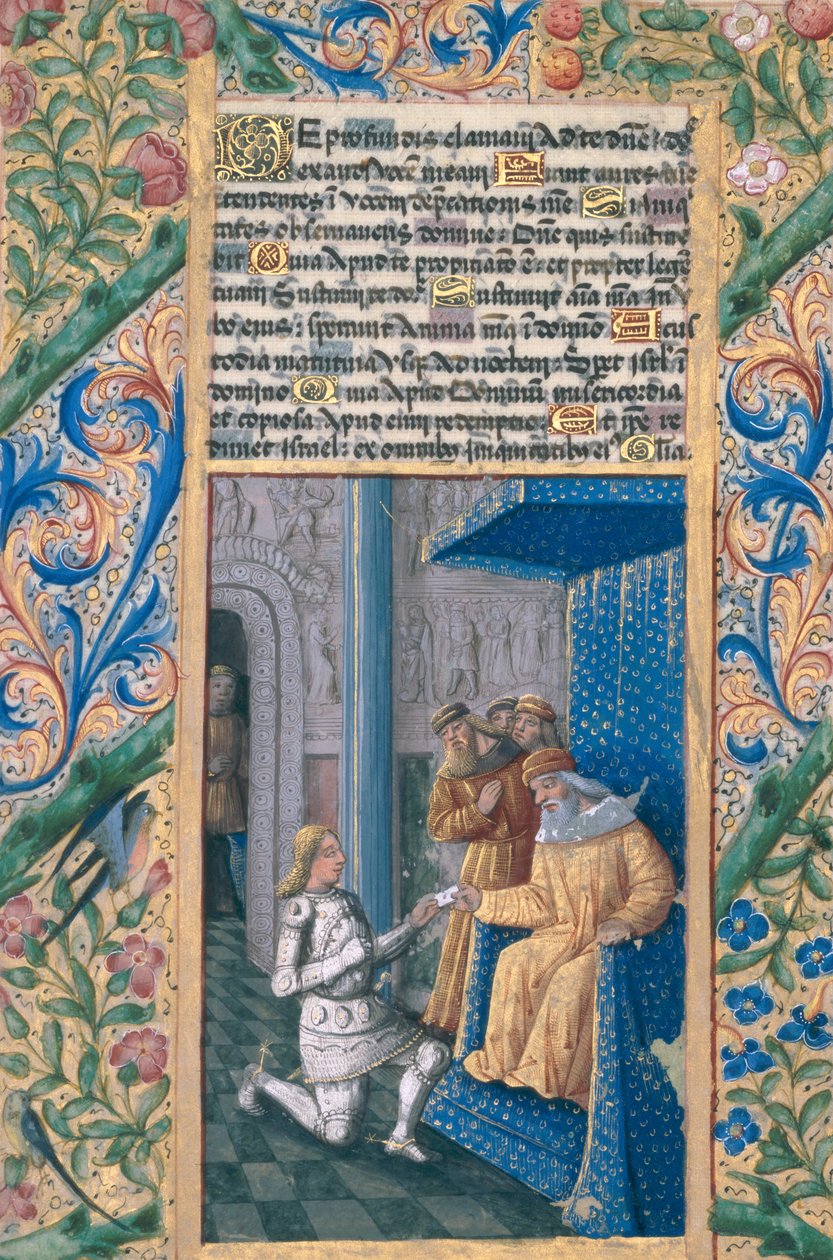 De profundis clamavi Ad te dñe: dñe
exaudi vocẽ meam Fiant aures tue
ĩtendentes ĩ vocem depͣcationis mee Si iniqͥ
tates observaveris domine: Dñe quis sustine
bit Quia Apud te propiciatõ ẽ: et propter legẽ
tuam Sustinui te dñe Sustinuit aĩa mͣa ĩ v̾
bo eius: speravit Anima mͣa ĩ domino A cus
todia matutina Vsqͣ Ad noctem: Speret isrl̃ ĩ
domino Quia Apud Dominum misericordia
et copiosa Apud eum redemptio Et ip̃e re
dimet israel: ex omnibꝰ iniquitatibꝰ eiꝰ Glia